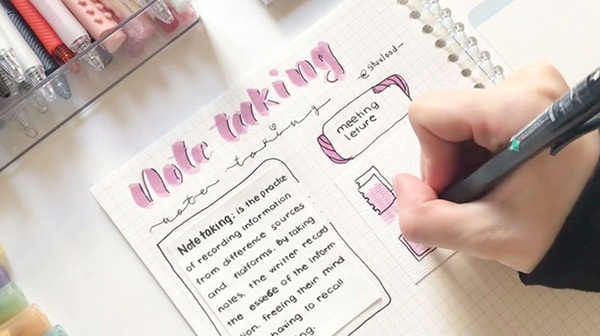 Note taking
note taking
meeting
leture
Note taking: is the
of recording information
from difference sources
and flatforms. By taking
notes, the writer record
the essese of the inform
ion, freeing their mind
having to recall